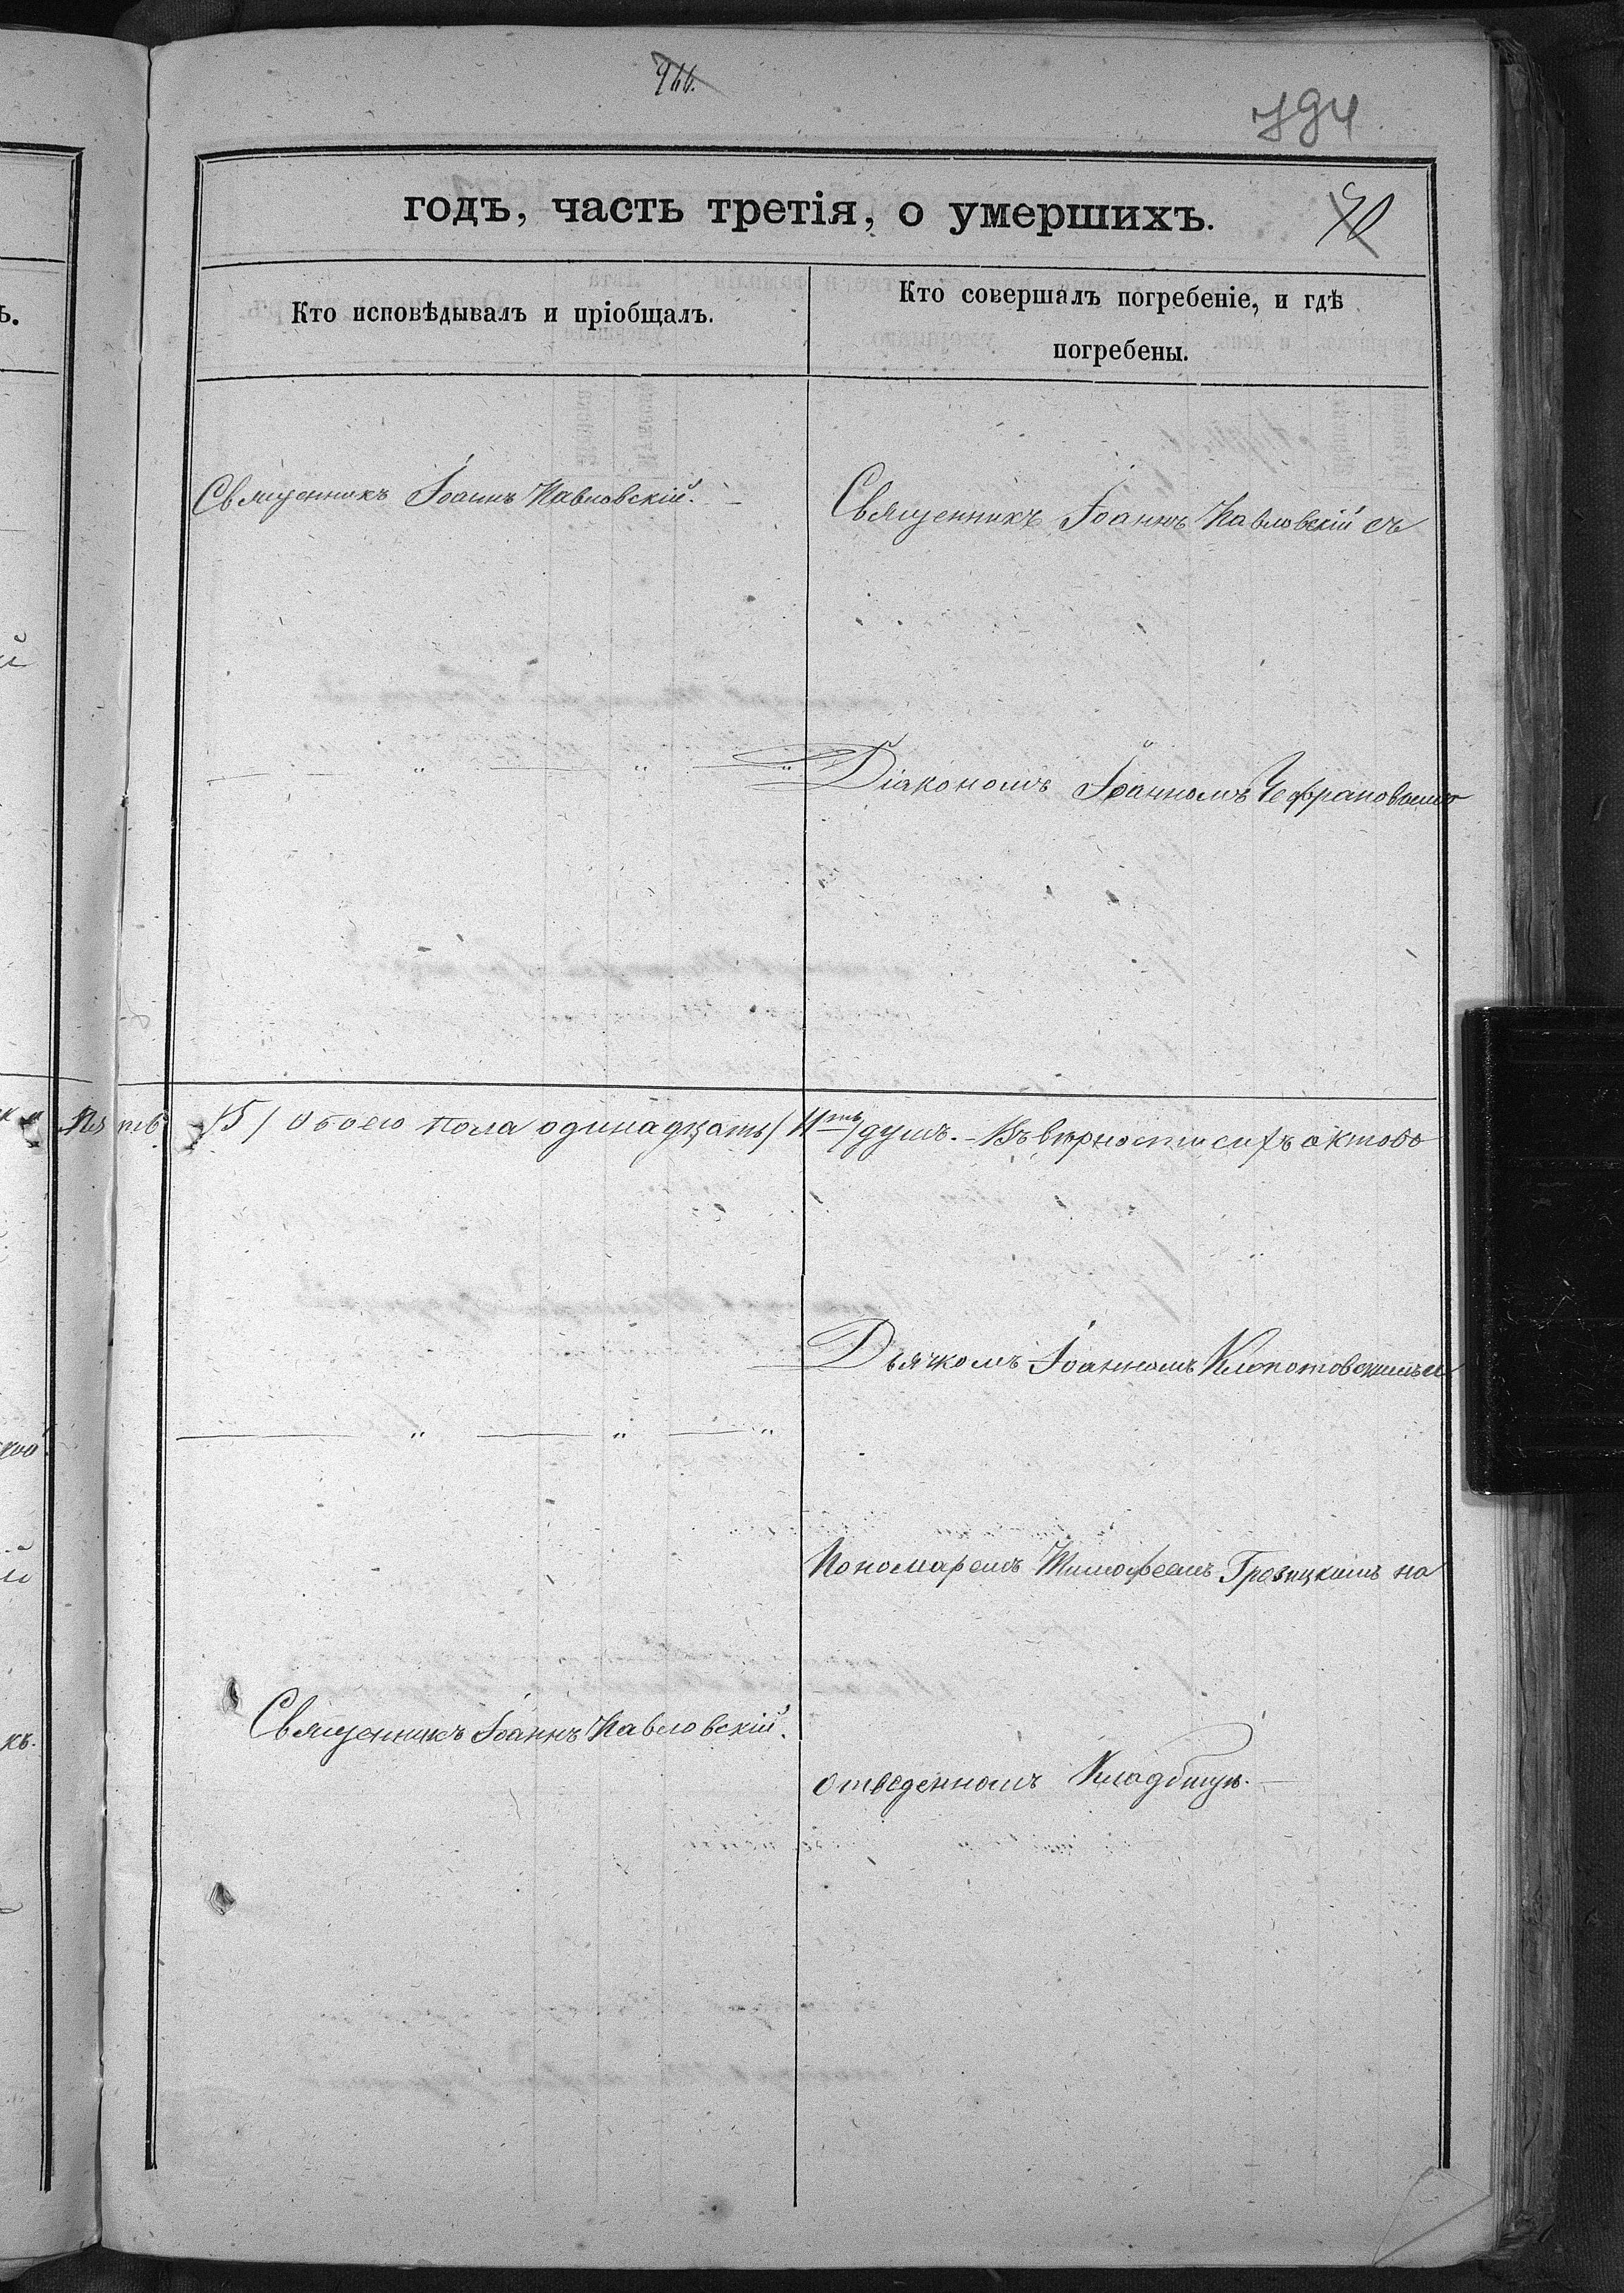 966.
794.
годъ, часть третія, о умершихъ.
40
Кто исповѣдывалъ и пріобщалъ.
Кто совершалъ погребеніе, и гдѣ
погребены.
Священникъ Іоаннъ Павловскій.
Священникъ Іоаннъ Павловскій съ
Діакономъ Іоанномъ Чефрановымъ
/5/ обоего пола одинадцать /11ть/ душъ. - Въ вѣрности сихъ актовъ
Дьячкомъ Іоанномъ Клопотовскимъ и
Пономаремъ Тимофеемъ на
Священникъ Іоаннъ Павловскій.
отведенномъ Кладбищѣ.